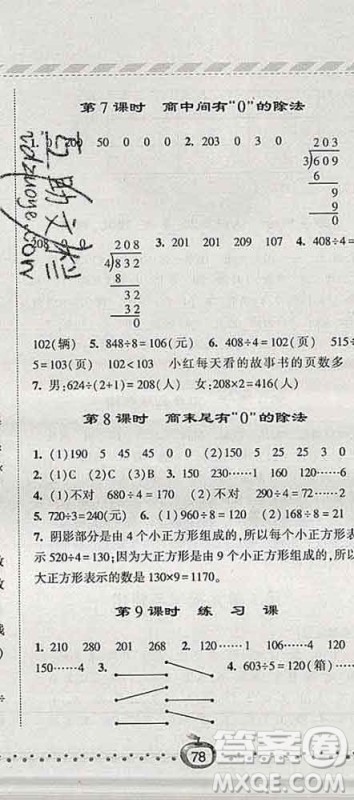 第7课时 商中间有“0”的除法
1. 0 200 50 0 0 0 2. 203 0 3 0
203
3)609
6
9
9
0
互助文栏
208
208
4)832
8
32
32
0
3. 201 201 209 107 4. 408÷4=
102(辆) 5. 848÷8=106(元) 6. 408÷4=102(页) 515÷
5=103(页) 102<103 小红每天看的故事书的页数多
7. 男:624÷(2+1)=208(人) 女:208×2=416(人)
第8课时 商末尾有“0”的除法
1. (1)190 5 45 45 0 0 (2)150 4 20 20 0
2. (1)C (2)B (3)B (4)A 3. 230 150 220……1
130 120……1 160 4. (1)不对 680÷4=170 (2)不对 290÷2=
5. 720÷3=240(元) 6. (1)960÷8=120(元)
7. 阴影部分是由4个小正方形组成的,所以每个小正方形表
示520÷4=130;因为大正方形是由9个小正方形组成的,
大正方形表示的数是130×9=1170。
第9课时 练习课
1. 210 280 201 268 2. 120……1 106……4 120
150……4 3. 4. 603÷5=120(箱)
78
答案圈
MXQE.COM